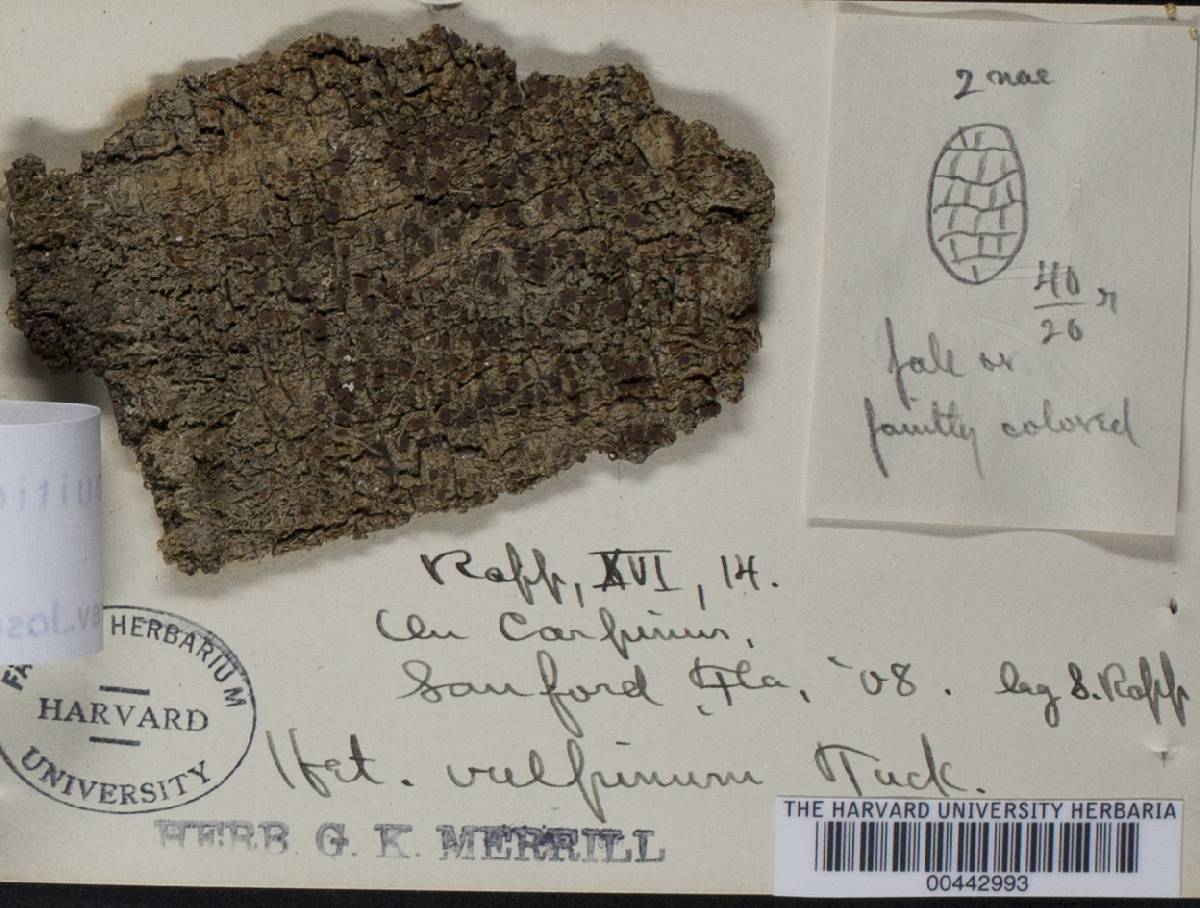 2 nae
40
20
pale or
faintly colored
Rapp, XVI, 14.
On Carpinus,
Sanford Fla, '08. leg S. Rapp
Het. vulpinum Tuck.
HERBARIUM
HARVARD
UNIVERSITY
HERB. G. K. MERRILL
THE HARVARD UNIVERSITY HERBARIA
00442993